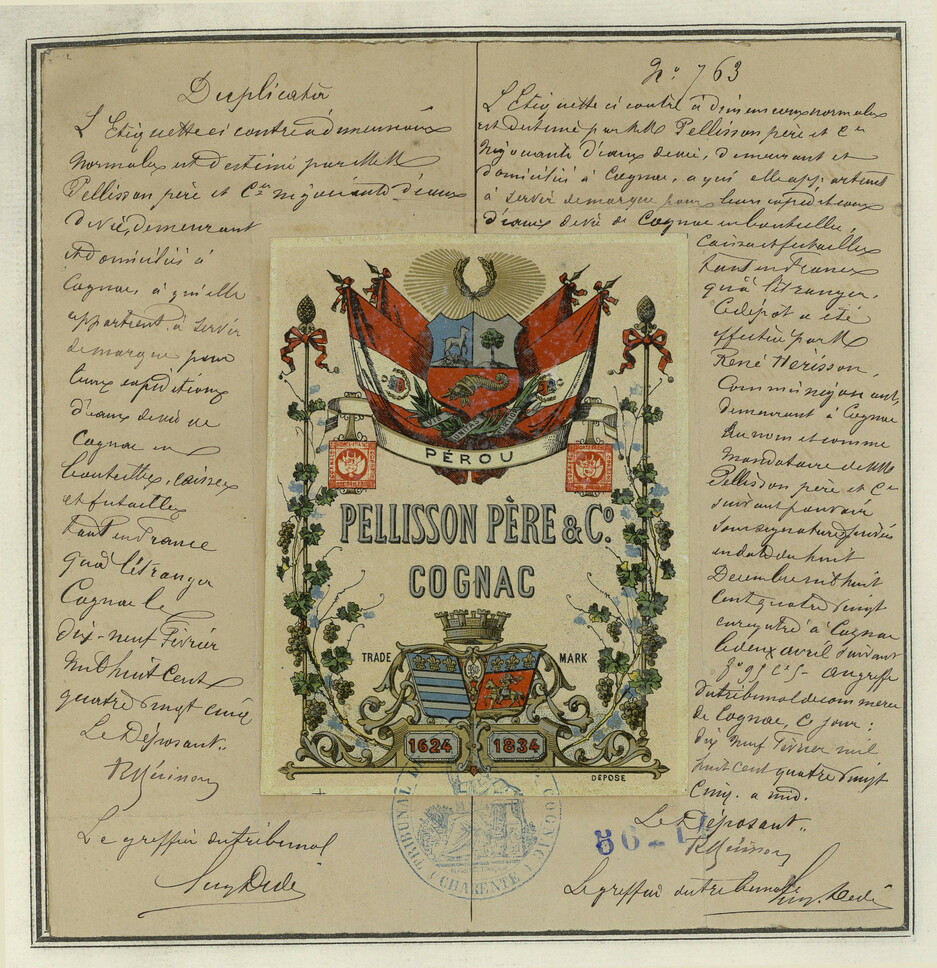 Duplicata
L'Etiquette ci contre à dimensions
normales est destiné par MM
Pellisson père et Cie négociants d'eaux
de vie, demeurant
et domiciliés à
Cognac, à qui elle
appartient, à servir
de marque pour
leurs expéditions
d'eaux de vie de
Cognac en
bouteilles, caisses
et futailles
tant en France
qu'à l'étranger
Cognac le
dix-neuf Février
mil huit cent
quatre vingt cinq
Le Déposant.
R Hérisson
Le greffier du tribunal
No 763
L'Etiquette ci contre à dimensions normales
est destiné par MM Pellisson père et Cie
négociants d'eaux de vie, demeurant et
domiciliés à Cognac, a qui elle appartient
à servir de marque pour leurs expéditions
d'eaux de vie de Cognac en bouteilles,
caisses et futailles
tant en France
qu'à l'étranger.
Ce dépôt a été
effectué par M
René Hérisson,
commis négociant,
demeurant à Cognac
au nom et comme
mandataire de MM
Pellisson père et Cie
suivant pouvoir
sous signatures privées
en date du huit
Decembre mil huit
cent quatre vingt
enregistré à Cognac
le deux avril suivant
au greffe
du tribunal de commerce
de Cognac, ce jour:
dix neuf Février mil
huit cent quatre vingt
cinq. a midi.
Le Déposant.
R Hérisson
Le greffier du tribunal
PÉROU
PELLISSON PÈRE & Co.
COGNAC
TRADE MARK
1624 1834
DÉPOSÉ
TRIBUNAL COGNAC
(CHARENTE)